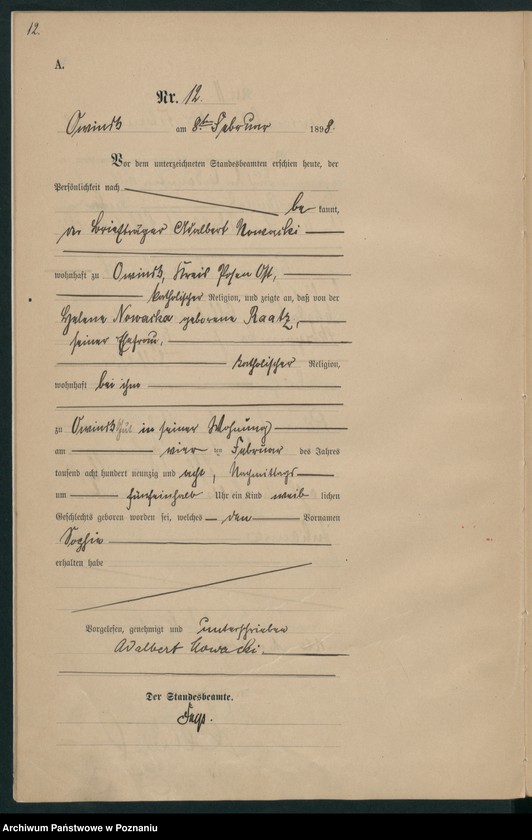 12.
A.
Nr. 12.
Owinsk am 8ten Februar 1898.
Vor dem unterzeichneten Standesbeamten erschien heute, der
Persönlichkeit nach
be kannt,
der Briefträger Adalbert Nowacki
wohnhaft zu Owinsk, Kreis Posen Ost,
katholischer Religion, und zeigte an, daß von der
Helene Nowacka geborene Raatz,
seiner Ehefrau,
katholischer Religion,
wohnhaft bei ihm
zu Owinsk in seiner Wohnung
am vier ten Februar des Jahres
tausend acht hundert neunzig und acht, Nachmittags
um fünfeinhalb Uhr ein Kind weib lichen
Geschlechts geboren worden sei, welches den Vornamen
Sophie
erhalten habe
Vorgelesen, genehmigt und unterschrieben
Adalbert Nowacki.
Der Standesbeamte.
Archiwum Państwowe w Poznaniu